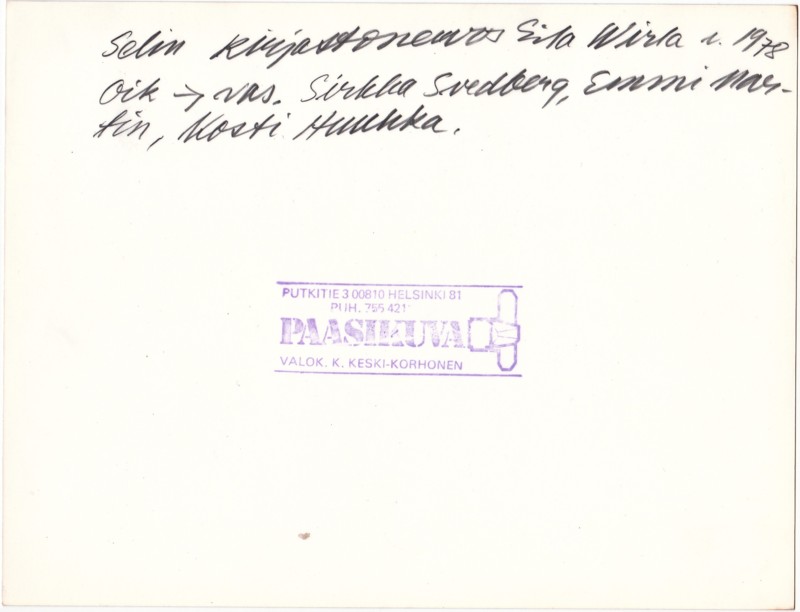 Selin kirjastoneuvos Eila Wirla v. 1978
Oik → vas. Sirkka Svedberg, Emmi Mar-
tin, Kosti Huuhka.
PUTKITIE 3 00810 HELSINKI 81
PUH. 755 421
PAASIKUVA
VALOK. K. KESKI-KORHONEN